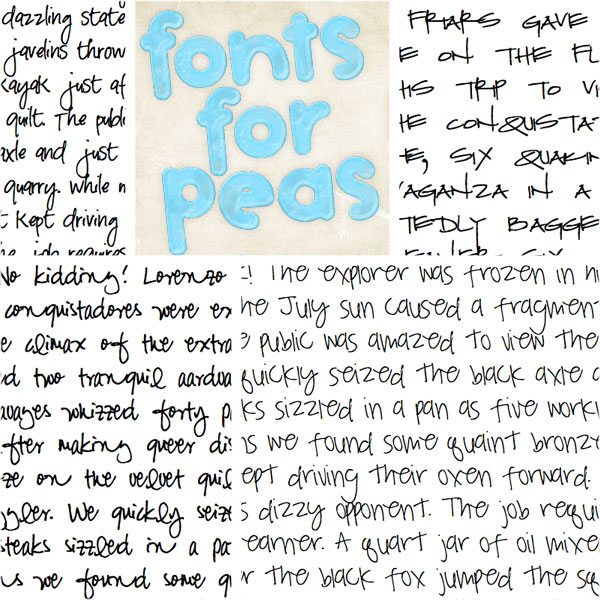 dazzling state
javelins throw
kayak just af
quilt. The publi
axle and just
quarry. While n
t kept driving
the job requires
fonts
for
peas
FRIARS GAVE
E ON THE FL
HS TRIP TO VI
HE CONQUISTA
E, SIX QUAKIN
AGANZA IN A
TEDLY BAGGE
No kidding! Lorenzo
conquistadores were ex
e climax of the extra
d two tranquil aardva
wages whizzed forty p
After making queer di
ze on the velvet quil
ggler. We quickly seiz
steaks sizzled in a pa
us we found some q
! The explorer was frozen in hi
he July sun caused a fragmen
public was amazed to view the
quickly seized the black axle a
ks sizzled in a pan as five worki
s we found some quaint bronze
ept driving their oxen forward.
s dizzy opponent. The job requi
earner. A quart jar of oil mixe
r the black fox jumped the sq